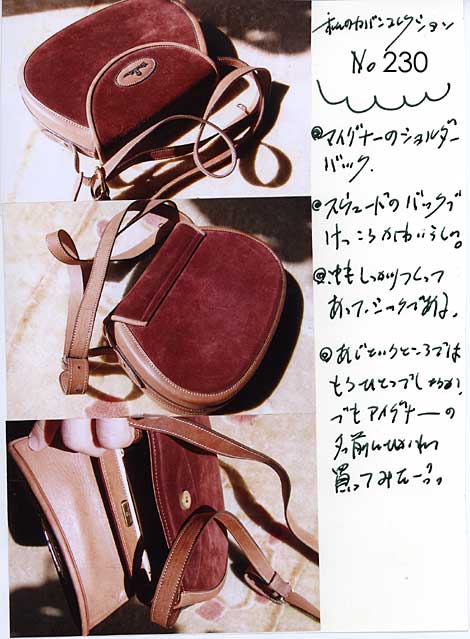 私のカバンコレクション
No 230
◎アイグナーのショルダー
バック.
◎スウェードのバックで
けっこうかわいらしい。
しっかりつくって
あって、シックである。
もうひとつでしょうか?
でもアイグナーの
名前にひかれて
買ってみたー!!